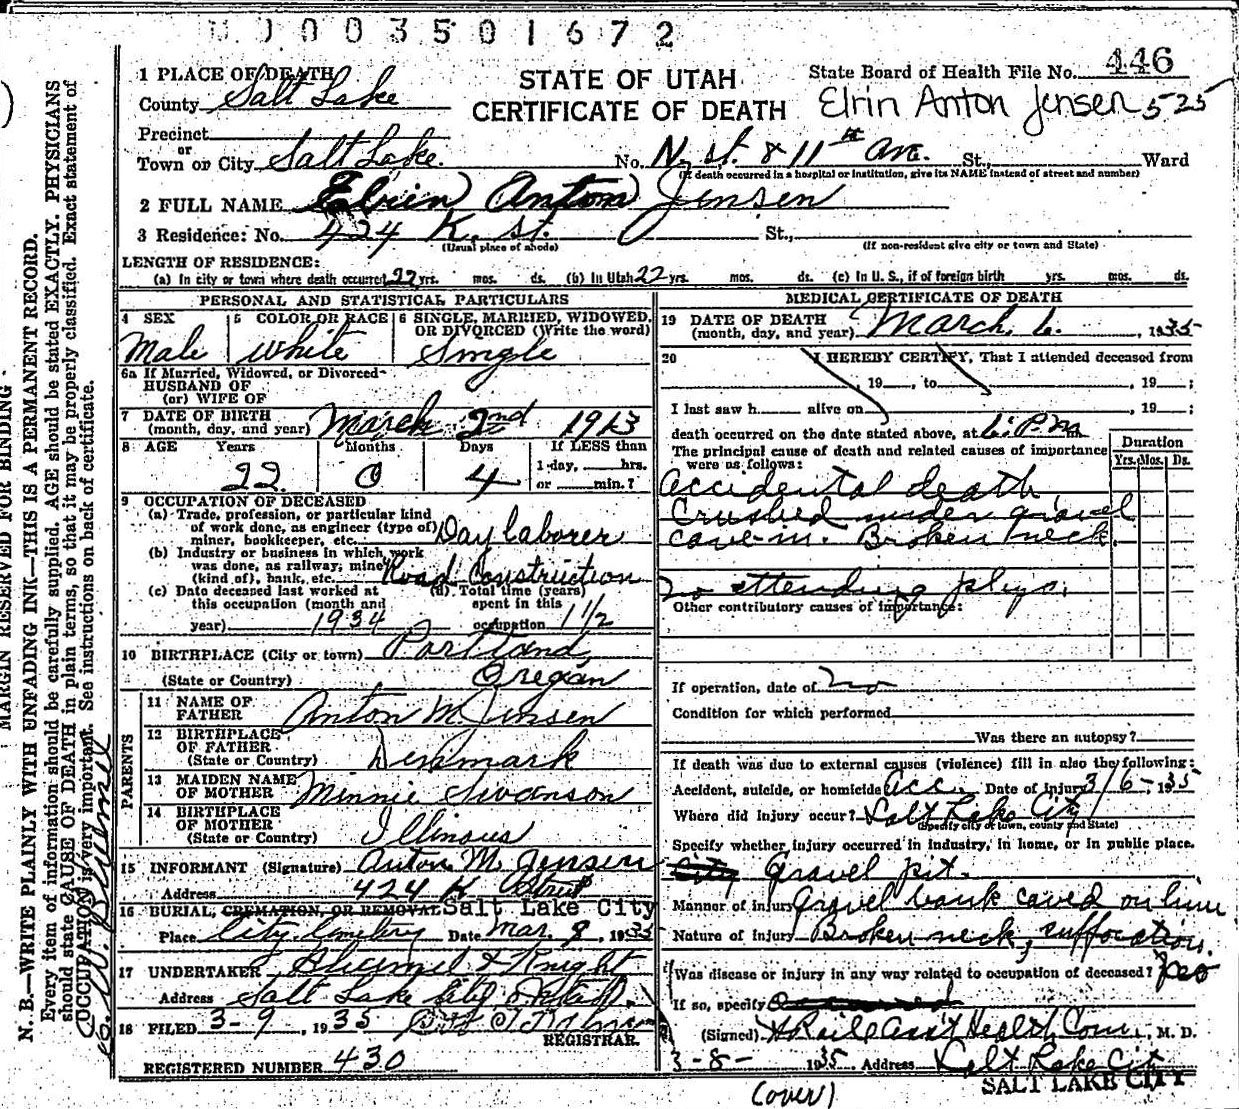 0003501672
1 PLACE OF DEATH
County Salt Lake
STATE OF UTAH
CERTIFICATE OF DEATH
State Board of Health File No. 446
Elrin Anton Jensen 525
Precinct
or
Town or City Salt Lake. No. N. st. & 11th Ave. St., Ward
(If death occurred in a hospital or institution, give its NAME instead of street and number)
2 FULL NAME Elrin Anton Jensen
3 Residence: No. 424 K. St. St.,
(Usual place of abode) (If non-resident give city or town and State)
LENGTH OF RESIDENCE:
(a) In city or town where death occurred 22 yrs. mos. ds. (b) In Utah 22 yrs. mos. ds. (c) In U. S., if of foreign birth yrs. mos. ds.
PERSONAL AND STATISTICAL PARTICULARS
4 SEX
Male
5 COLOR OR RACE
White
6 SINGLE, MARRIED, WIDOWED, OR DIVORCED (Write the word)
Single
6a If Married, Widowed, or Divorced
HUSBAND OF
(or) WIFE OF
7 DATE OF BIRTH
(month, day, and year) March 2nd 1913
8 AGE Years Months Days If LESS than
22 0 4 1 day, hrs.
or min.?
9 OCCUPATION OF DECEASED
(a) Trade, profession, or particular kind
of work done, as engineer (type of)
miner, bookkeeper, etc. Day laborer
(b) Industry or business in which work
was done, as railway, mine
(kind of), bank, etc. Road Construction
(c) Date deceased last worked at
this occupation (month and
year) 1934
(d) Total time (years)
spent in this
occupation 1 1/2
10 BIRTHPLACE (City or town) Portland,
(State or Country) Oregon
PARENTS
11 NAME OF
FATHER Anton M. Jensen
12 BIRTHPLACE
OF FATHER
(State or Country) Denmark
13 MAIDEN NAME
OF MOTHER Minnie Swanson
14 BIRTHPLACE
OF MOTHER
(State or Country) Illinois
15 INFORMANT (Signature) Anton M. Jensen
Address 424 K Street
16 BURIAL, CREMATION, OR REMOVAL Salt Lake City
Place City Cemetery Date Mar. 9, 1935
17 UNDERTAKER & Knight
Address Salt Lake City Utah.
18 FILED 3-9, 1935
REGISTRAR.
REGISTERED NUMBER 430
MEDICAL CERTIFICATE OF DEATH
19 DATE OF DEATH
(month, day, and year) March. 6. , 1935
20 I HEREBY CERTIFY, That I attended deceased from
, 19 , to , 19 ;
I last saw h alive on , 19 ;
death occurred on the date stated above, at P.M m
The principal cause of death and related causes of importance
were as follows:
Duration
Yrs. Mos. Ds.
Accidental death,
Crushed under gravel
cave-in. Broken neck.
No attending phys.
Other contributory causes of importance:
If operation, date of no
Condition for which performed
Was there an autopsy?
If death was due to external causes (violence) fill in also the following:
Accident, suicide, or homicide Acc. Date of injury 3/6-, 1935
Where did injury occur? Salt Lake City
(Specify city or town, county and State)
Specify whether injury occurred in industry, in home, or in public place.
City Gravel pit.
Manner of injury Gravel bank caved on him.
Nature of Injury Broken neck, suffocation.
Was disease or injury in any way related to occupation of deceased? Yes
If so, specify
(Signed) Ass't Health Com., M. D.
3-8- 1935 Address Salt Lake City
SALT LAKE CITY
(over)
MARGIN RESERVED FOR BINDING
N. B.—WRITE PLAINLY WITH UNFADING INK—THIS IS A PERMANENT RECORD.
Every item of information should be carefully supplied. AGE should be stated EXACTLY. PHYSICIANS
should state CAUSE OF DEATH in plain terms, so that it may be properly classified. Exact statement of
OCCUPATION is very important. See instructions on back of certificate.